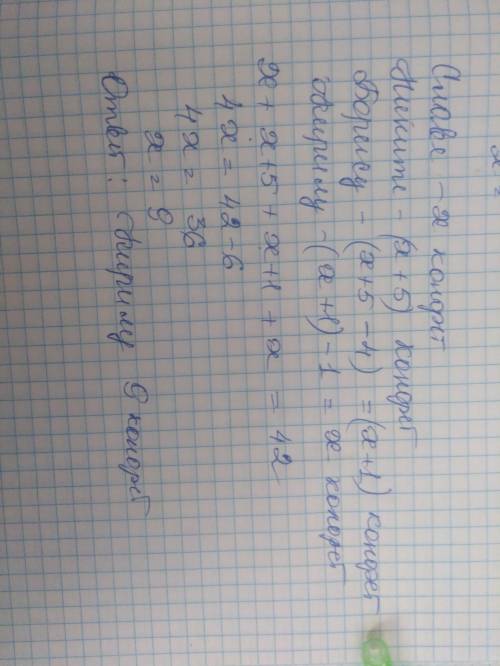 Славе - x конфет
Никите - (x+5) конфет
Борису - (x+5-4) = (x+1) конфет
Кириму - (x+1) - 1 = x конфет
x + x+5 + x+1 + x = 42
4x = 42-6
4x = 36
x = 9
Ответ: Кириму 9 конфет